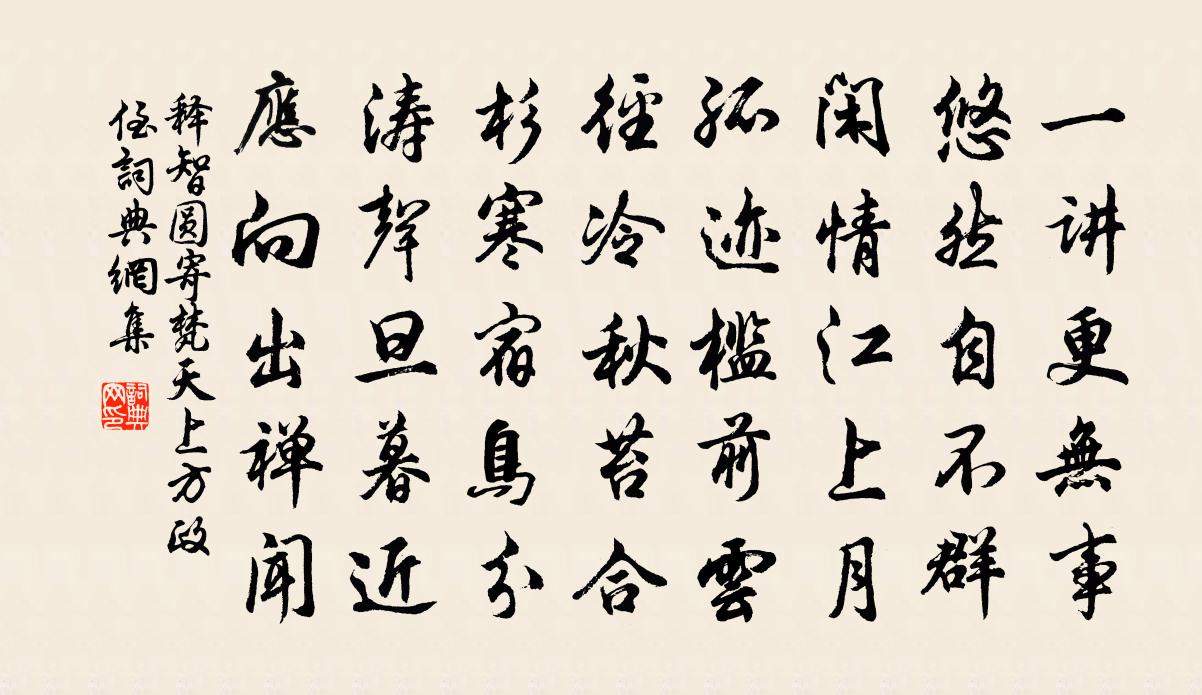 一讲更無事
悠然自不群
閑情江上月
孤迹檻前雲
徑冷秋苔合
杉寒宿鳥分
濤聲旦暮近
應向出禅聞
释智圆寄梵天上方政
侄詞典網集
詞典
网印